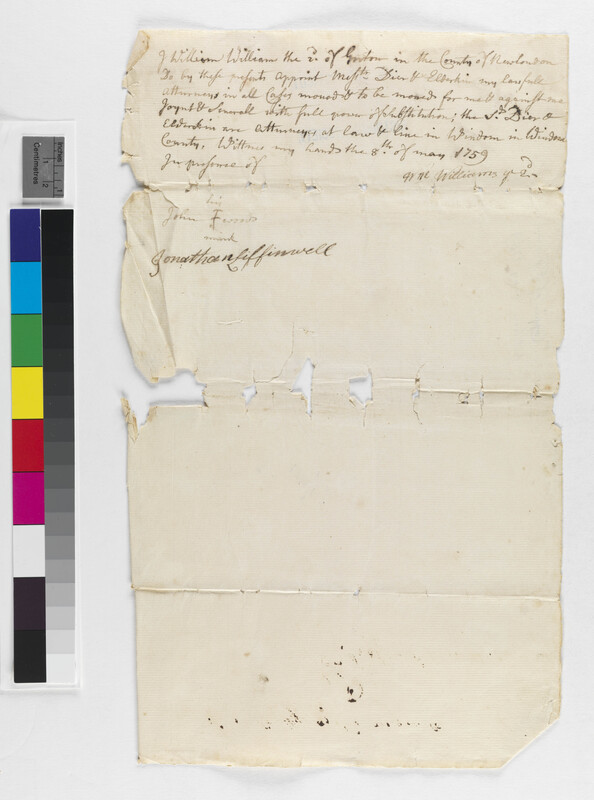 I William William the 2d. of Groton in the County of Newlondon
Do by these presents appoint Messrs. Dier & Elderkin my lawfull
attorneys in all Cases moved & to be moved for me & against me
Joynt & Severall with full power of substitution; the Sd. Dier &
Elderkin are attorneys at law & live in Windom in Windom
County, Wittnes my hands the 8th. of may 1759
In presence of
Wm Williams ye 2d
his
John F
mark
Jonathan Leffinwell
Centimetres
inches
1
2